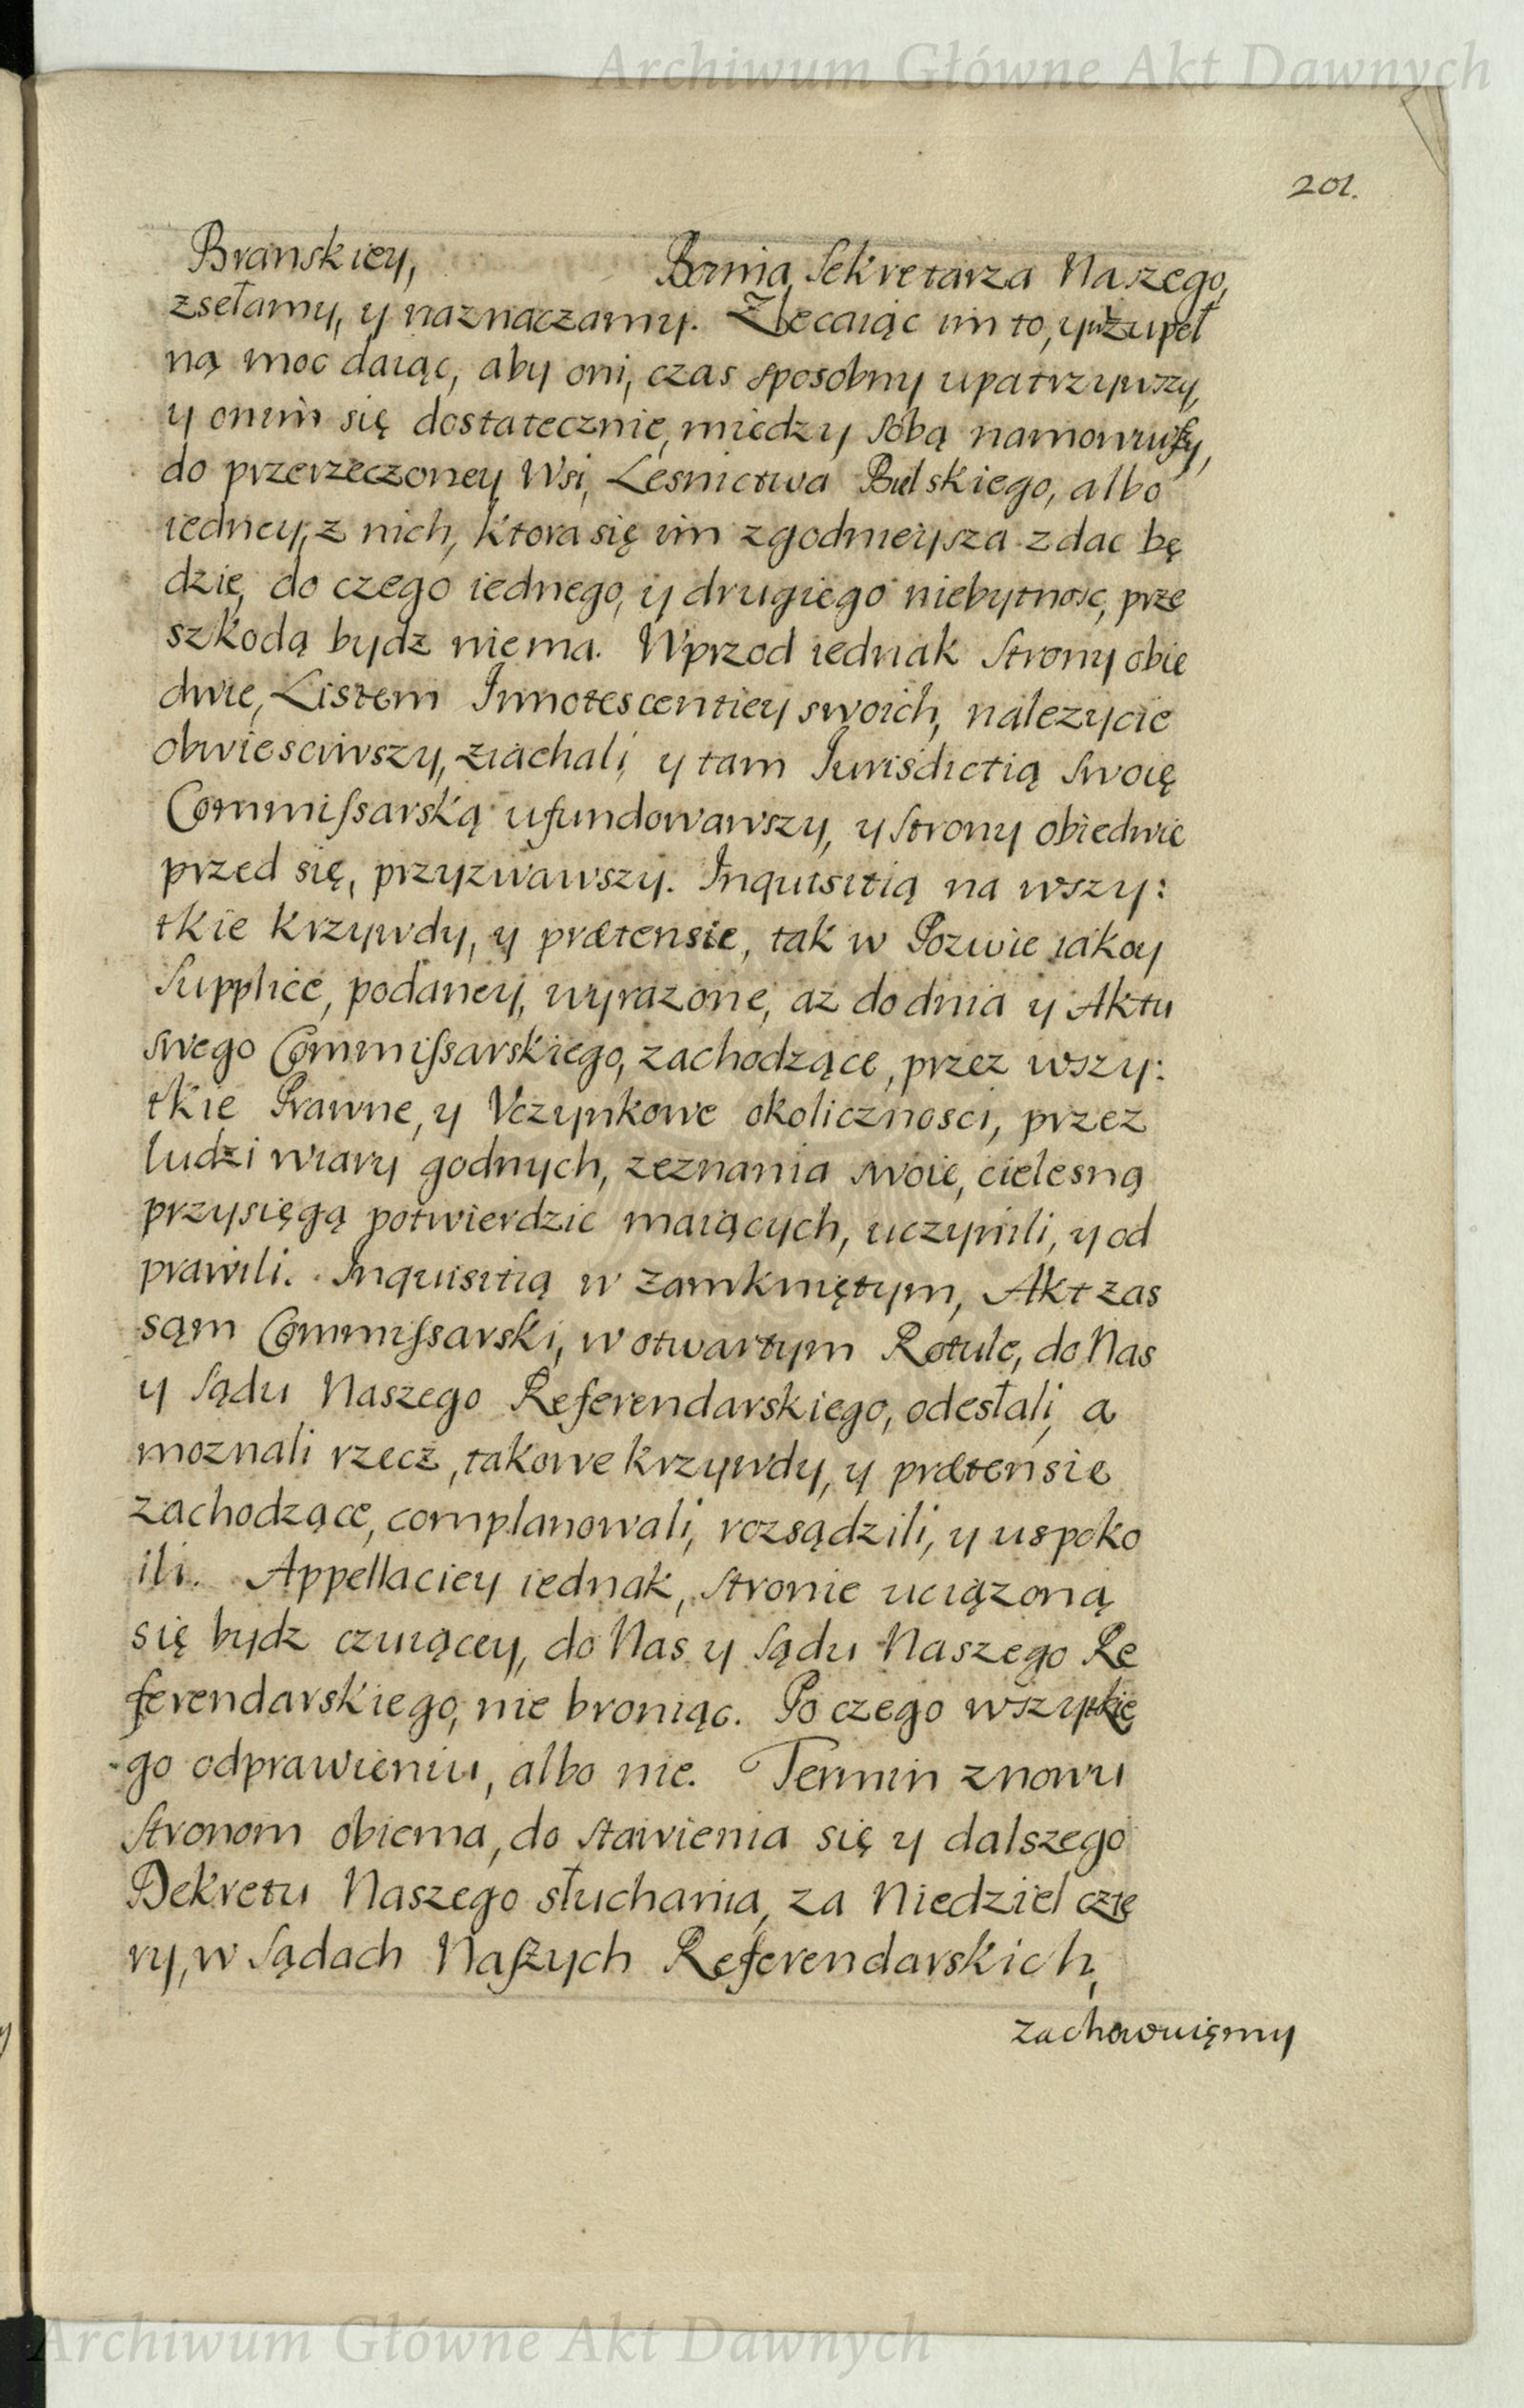 Archiwum Główne Akt Dawnych
201.
Branskiey, Bernia, Sekretarza Naszego,
zsełamy, y naznaczamy. Zlecaiąc im to, y zupeł
ną moc daiąc, aby oni, czas sposobny upatrzywszy,
y onim się dostatecznie, miedzy sobą namowiwszy,
do przerzeczoney Wsi, Lesnictwa Bielskiego, albo
iedney, z nich, ktora się im zgodnieysza zdac bę
dzie, do czego iednego, y drugiego niebytnosc, prze
szkodą bydz niema. Wprzod iednak Strony obie
dwie, Listem Innotescentiey swoich, nalezycie
obwiesciwszy, ziachali, y tam Jurisdictią Swoię
Commissarską ufundowawszy, y Strony obiedwie
przed się, przyzwawszy. Inquisitią na wszy:
tkie krzywdy, y prætensie, tak w Pozwie iako y
Supplice, podaney, wyrazone, az do dnia y Aktu
swego Commissarskiego, zachodzące, przez wszy:
tkie Prawne, y Uczynkowe okolicznosci, przez
ludzi wiary godnych, zeznania swoie, cielesną
przysięgą potwierdzic maiących, uczynili, y od
prawili. Inquisitią w zamkniętym, Akt zas
sąm Commissarski, w otwartym Rotule, do Nas
y Sądu Naszego Referendarskiego, odesłali, a
moznali rzecz, takowe krzywdy, y prætensie
zachodzące, complanowali, rozsądzili, y uspoko
ili. Appellaciey iednak, Stronie uciązoną
się bydz czuiącey, do Nas y Sądu Naszego Re
ferendarskiego, nie broniąc. Po czego wszytkie
go odprawieniu, albo nie. Termin znowu
Stronom obiema, do stawienia się y dalszego
Dekretu Naszego słuchania, za Niedziel czte
ry, w Sądach Naszych Referendarskich,
zachowuięmy
Archiwum Główne Akt Dawnych